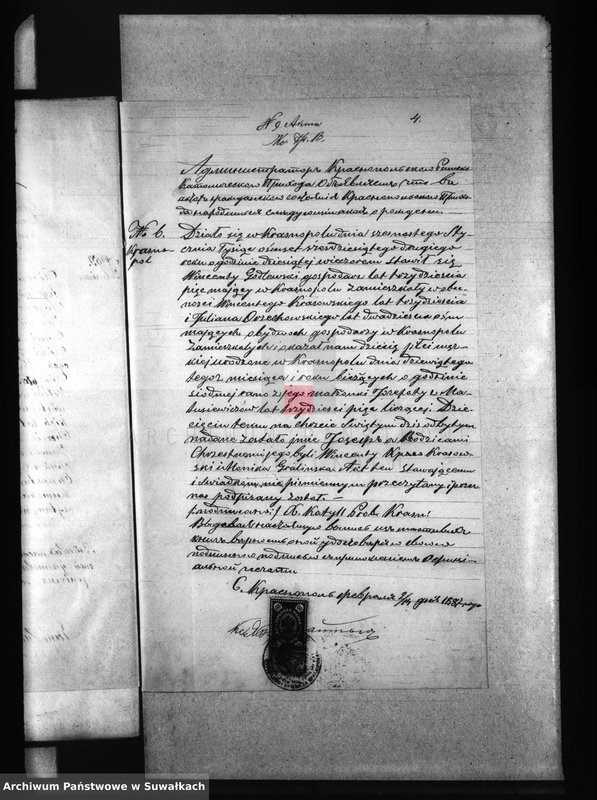 4.
Администраторъ Краснопольскаго Римско
Католическаго Прихода Объявляетъ, что въ
актахъ гражданскаго состоянія Краснопольскаго Прихо
№ 6.
Krasno
pol
Działo się w Krasnopolu dnia szesnastego Sty
cznia Tysiąc ośmset sześćdziesiątego drugiego
roku o godzinie dziesiątej wieczorem stawił się
Wincenty Godlewski gospodarz lat trzydzieścia
pięć mający w Krasnopolu zamieszkały w obe
cności Wincentego Krasowskiego lat trzydzieścia
i Juliana Orzechowskiego lat dwadzieścia ośm
mających obydwóch gospodarzy w Krasnopolu
zamieszkałych i okazał nam dziecię płci męz
kiej urodzone w Krasnopolu dnia dziewiątego
tegoż miesiąca i roku bieżących o godzinie
siódmej rano z jego małżonki Józefaty z Ma
tusiewiczów lat trzydzieści pięć liczącej. Dzie
cięciu temu na chrzcie Świętym dziś odbytym
nadane zostało imie Józef a Rodzicami
Chrzestnemi jego byli Wincenty Krasow
ski i Monika Gralinska Akt ten stawającemu
i świadkom nie piśmiennym przeczytany i przez
nas podpisany został. —
(podpisano) X. Prob. Krasn:
подписью съ приложеніемъ Оффиці-
альной печати
С. Краснополь Февраля 2/14 дня
Archiwum Państwowe w Suwałkach